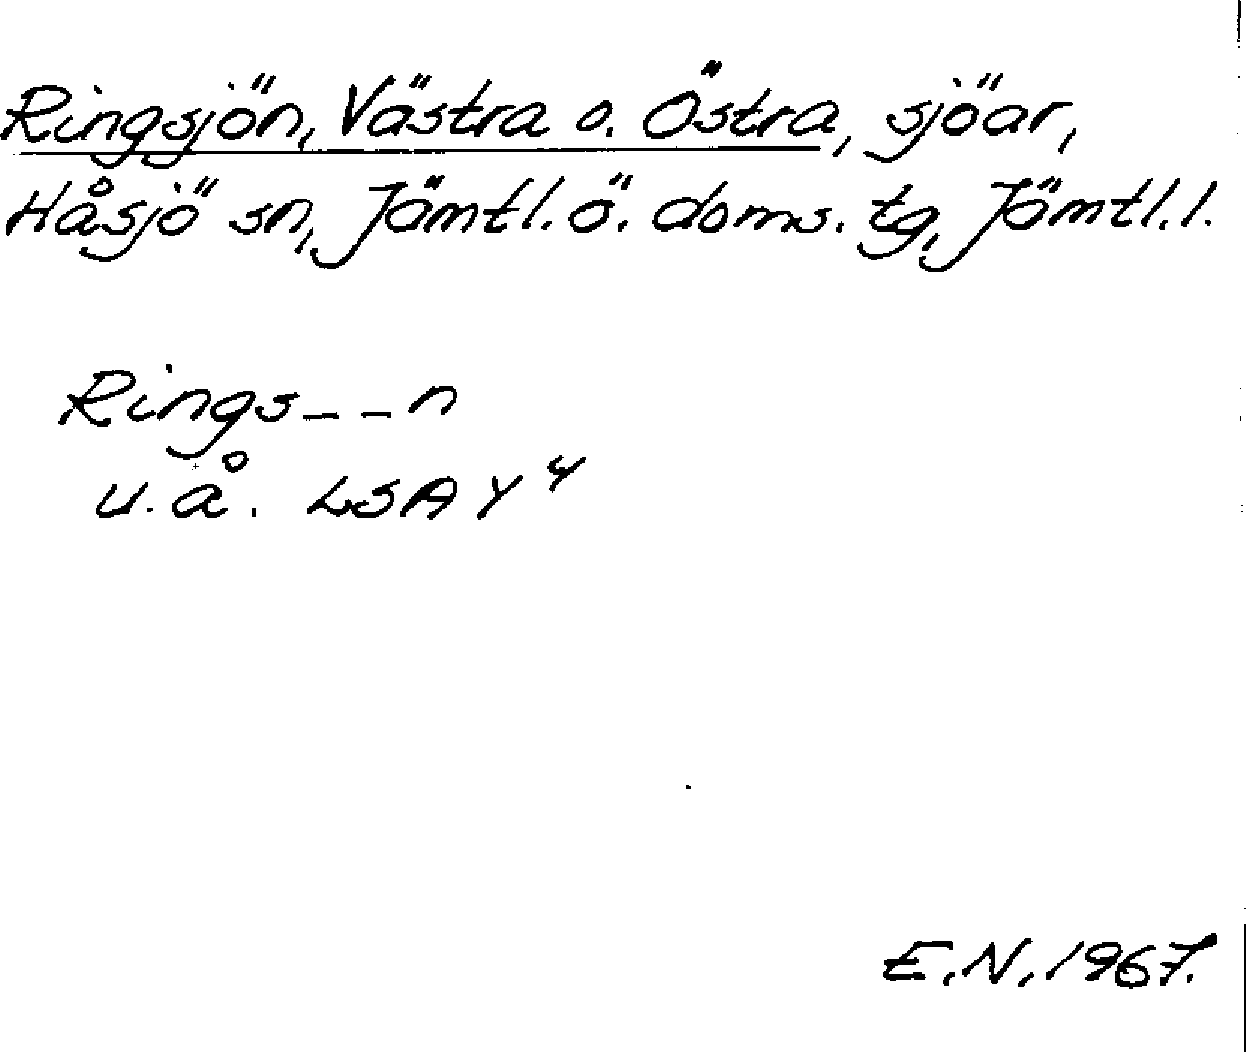 Ringsjön, Västra o. Östra, sjöar,
Håsjö sn, Jämtl. ö. doms. tg, Jämtl. l.
Rings__n
u. å. LSA Y⁴
E.N. 1967.